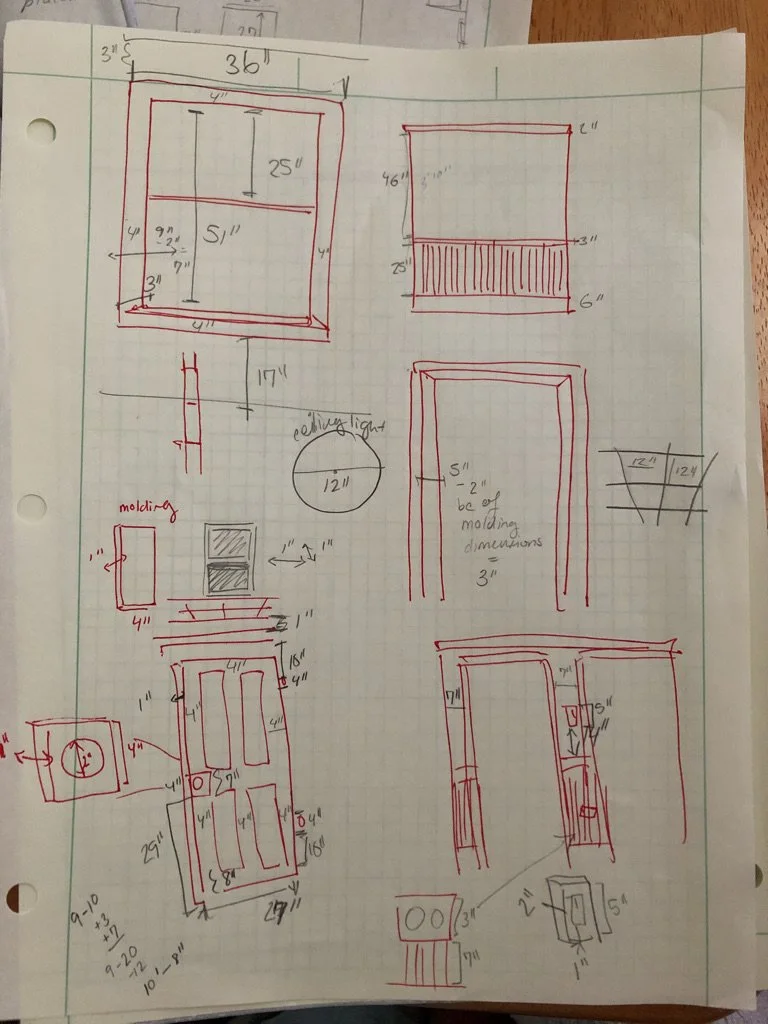 27"
3"
36"
4"
25"
51"
4"
9"
-2"
=
7"
4"
3"
4"
17"
2"
46"
3"
25"
6"
ceiling light
12"
5"
-2"
bc of
molding
dimensions
=
3"
12"
12"
molding
1"
4"
1"
1"
1"
16"
4"
4"
1"
4"
4"
4"
2"
4"
7"
4"
4"
4"
4"
16"
29"
8"
27"
9-10
+3
+7
9-20
-12
10'-8"
7"
7"
5"
4"
3"
7"
2"
5"
1"